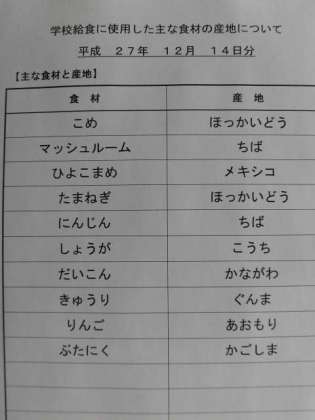 学校給食に使用した主な食材の産地について
平成　２７年　１２月　１４日分
【主な食材と産地】
食　材　産　地
こめ　ほっかいどう
マッシュルーム　ちば
ひよこまめ　メキシコ
たまねぎ　ほっかいどう
にんじん　ちば
しょうが　こうち
だいこん　かながわ
きゅうり　ぐんま
りんご　あおもり
ぶたにく　かごしま